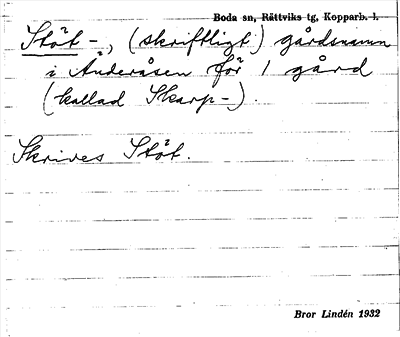 Boda sn, Rättviks tg, Kopparb. l.
Stöt-, (skriftligt) gårdsnamn
i Anderåsen för 1 gård
(kallad Skarp-).
Skrives Stöt.
Bror Lindén 1932